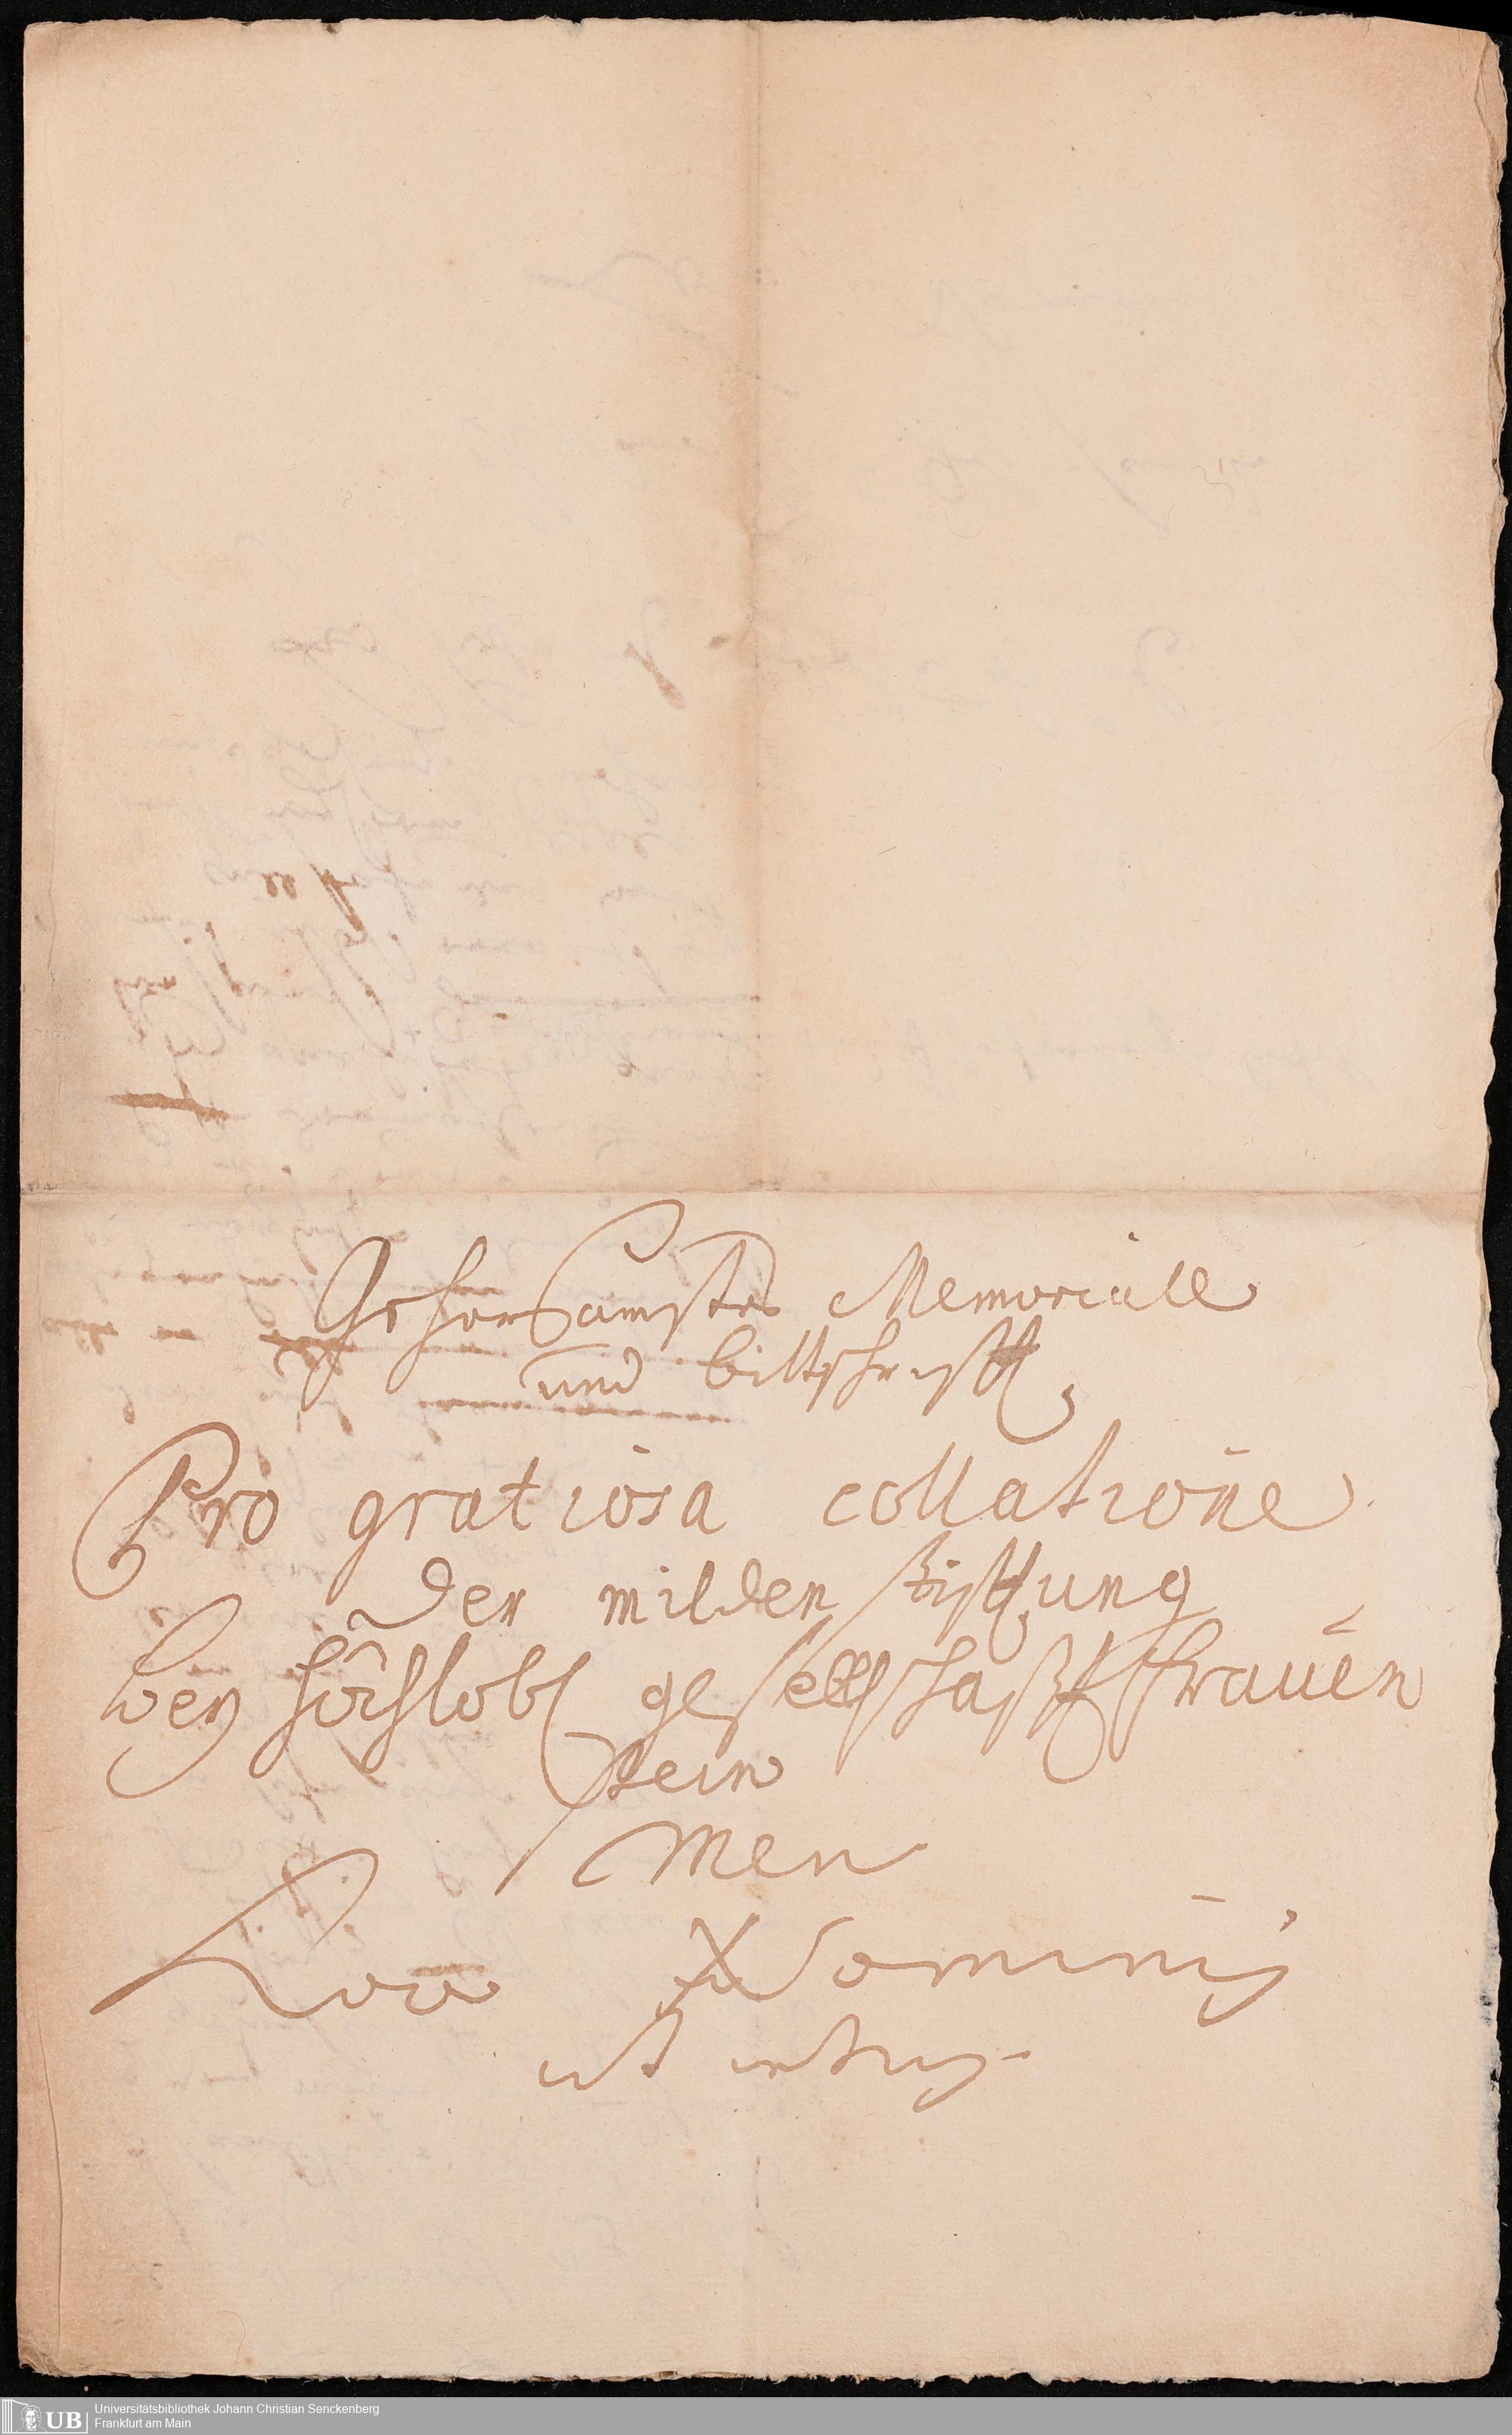 Gehorsamstes Memoriall
und bittschrifft,
Pro gratiosa collatione
der milden stifftung
bey höchlobl gesellschafft frauen
stein
Men
ut intus
UB
Universitätsbibliothek Johann Christian Senckenberg
Frankfurt am Main